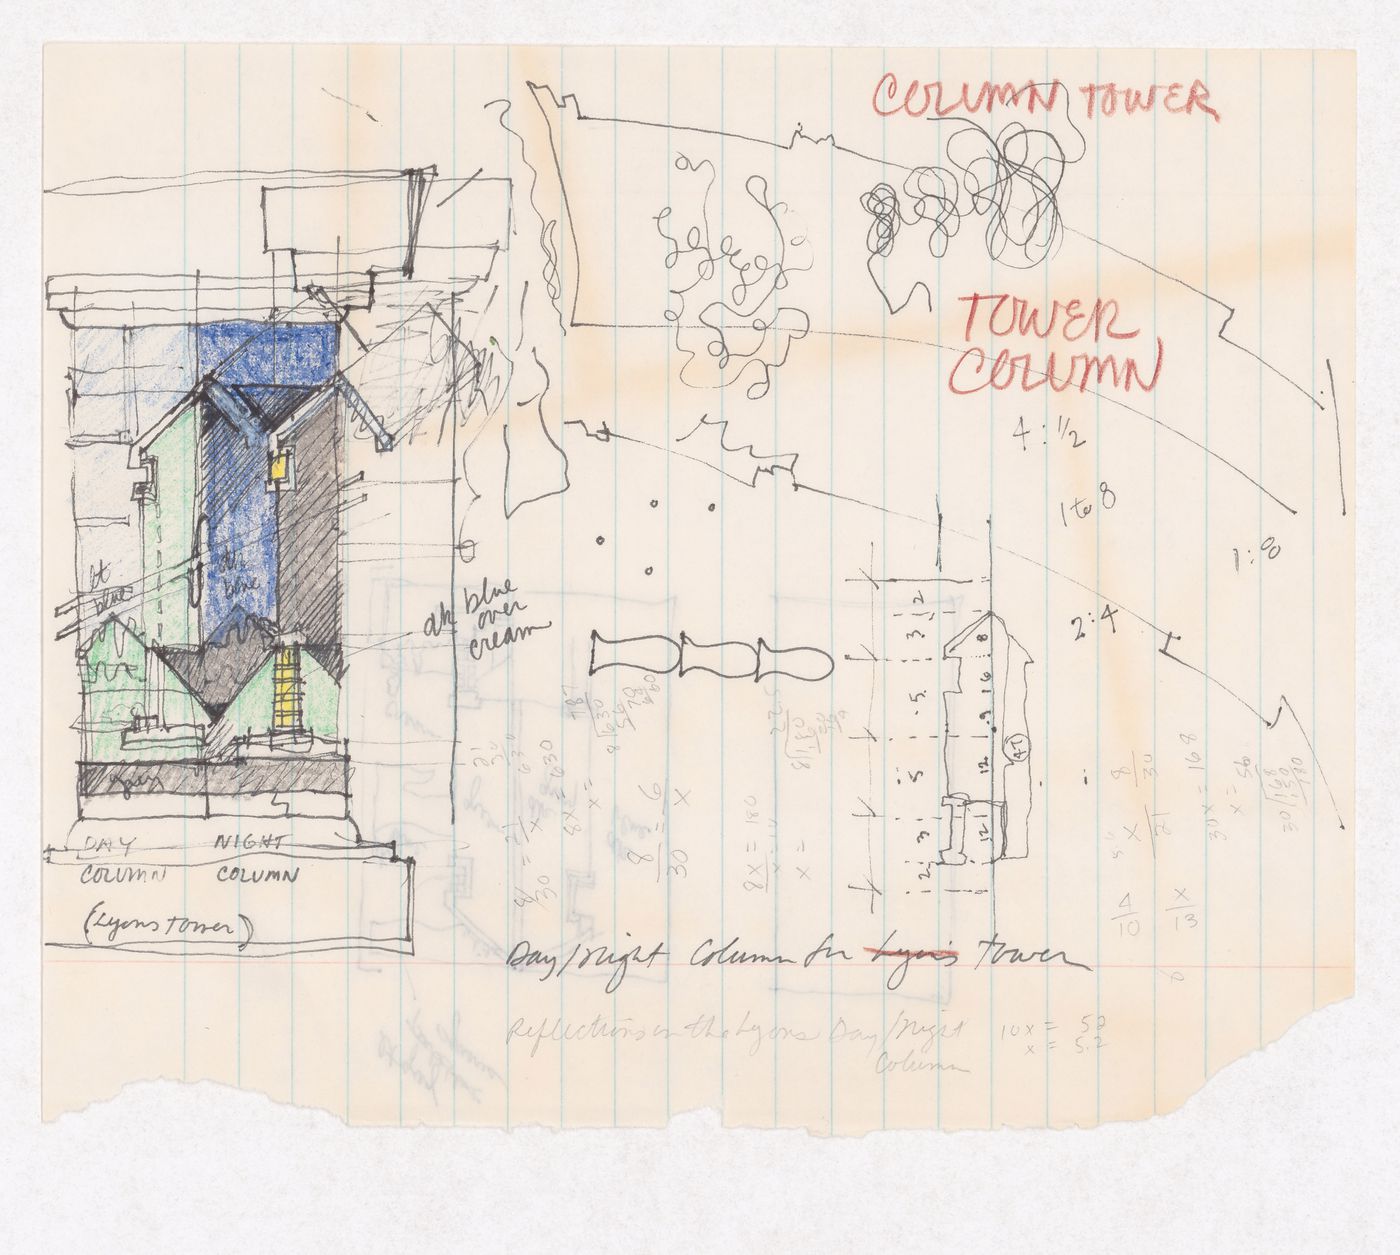 COLUMN TOWER
TOWER
COLUMN
4 : 1/2
1 to 8
1 : 8
2 : 4
lt
blue
dk
blue
dk blue
over
cream
gray
DAY
COLUMN
NIGHT
COLUMN
(Lyons Tower)
2
3
5
5
3
2
8
16
9
12
12
47
8/30 = 21/x
8x = 630
x =
8/30 = 6/x
8x = 180
x =
8/30
x/21
30x = 168
x = 56
4/10
x/13
Day/Night Column for Lyons Tower
Reflections on the Lyons Day/Night
Column
10x = 52
x = 5.2